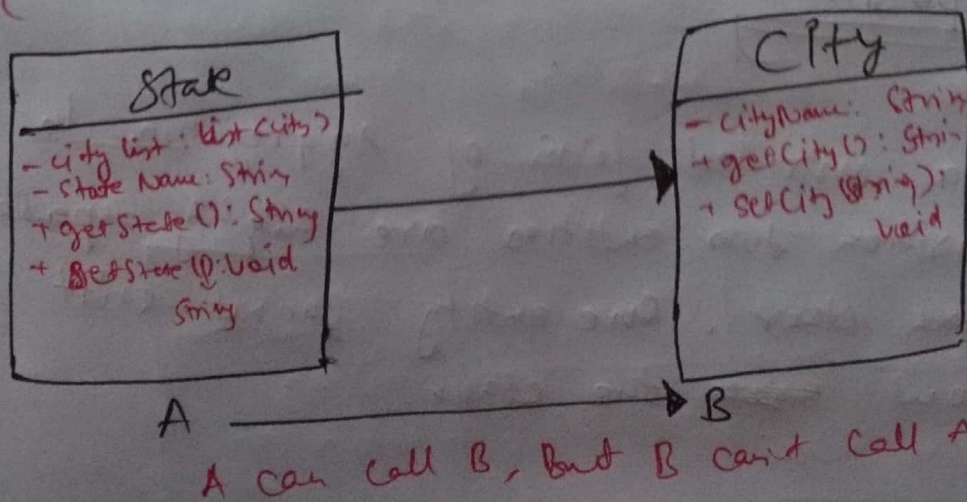 State
- City list : list <City>
- State Name : String
+ getState () : String
+ SetState () : void
String
City
- cityName : Strin
+ getCity () : Strin
+ setCity (String) :
void
A
B
A can call B, But B can't call A